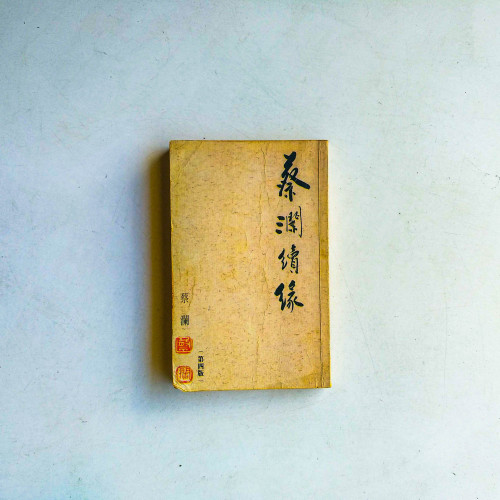 蔡瀾續緣
蔡瀾
第四版